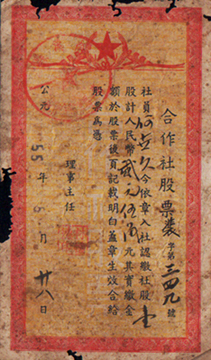 合作社股票農字第三四九號
社員 今依章入社認繳社股壹
股計人民幣貳元伍角 元其實繳金
額於股票後頁記載明白蓋章生效合給
股票為憑
理事主任
公元
55年5月廿八日